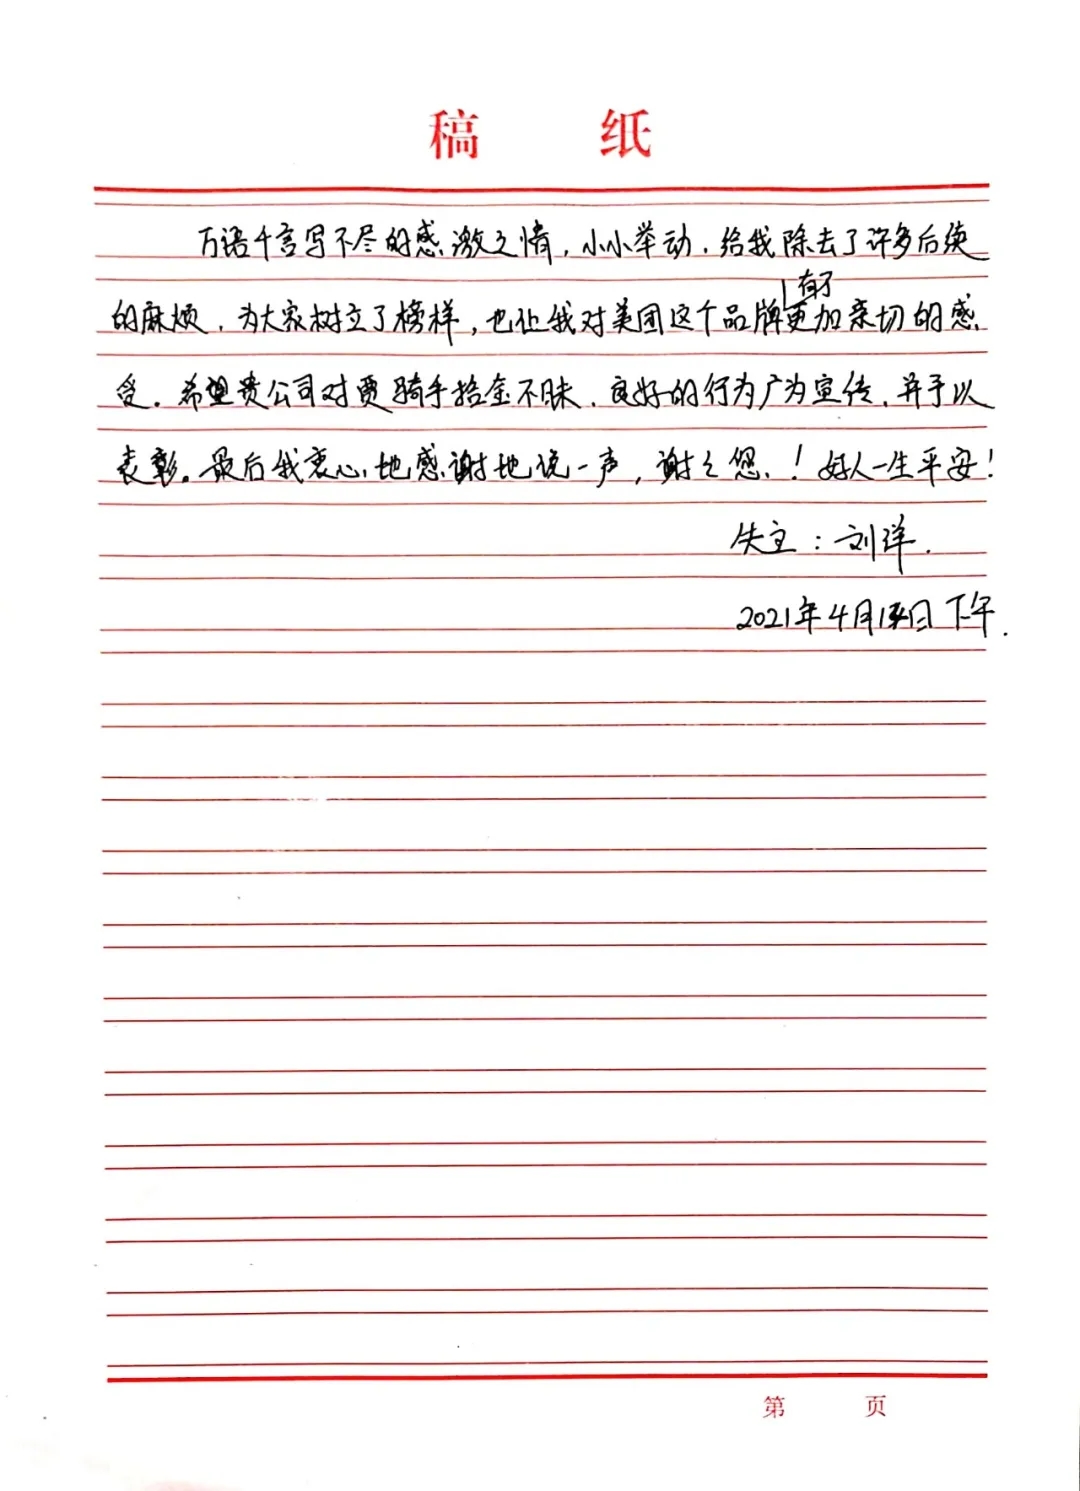 稿 纸
万语千言写不尽的感激之情，小小举动，给我除去了许多后续
的麻烦，为大家树立了榜样，也让我对美团这个品牌有了更加亲切的感
受。希望贵公司对贾骑手拾金不昧、良好的行为广为宣传，并予以
表彰。最后我衷心地感谢地说一声，谢谢您！好人一生平安！
失主：刘洋.
2021年4月日下午.
第 页